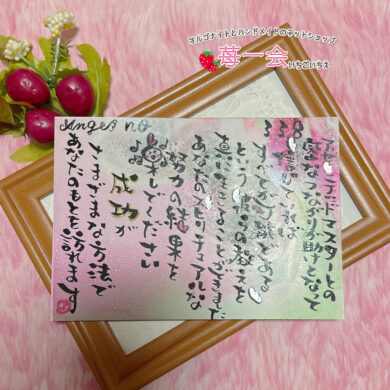 オルゴナイトとハンドメイドのネットショップ
苺一会
いちごいちえ
Angel no
アセンデッドマスターとの
なつながりが助けとなって
すべてが可能である
という彼らの教えを
真に生きることができました
あなたのスピリチュアルな
努力の結果を
楽しんでください
成功が
さまざまな方法で
あなたのもとを訪れます